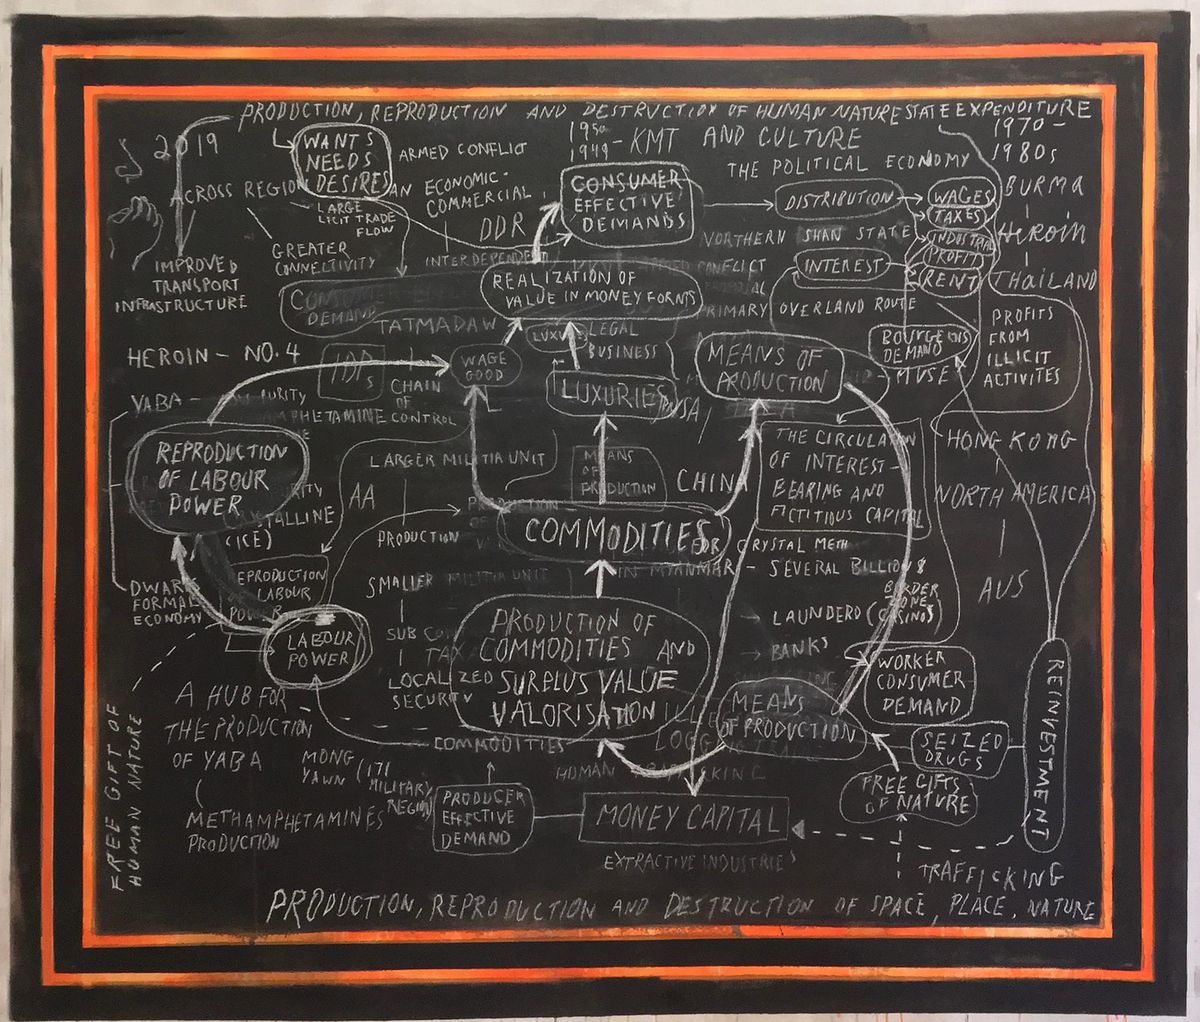 PRODUCTION, REPRODUCTION AND DESTRUCTION OF HUMAN NATURE STATE EXPENDITURE
2019
WANTS
NEEDS
DESIRES
ARMED CONFLICT
1950
1949 - KMT AND CULTURE
1970 -
1980s
THE POLITICAL ECONOMY
ACROSS REGION
AN ECONOMIC-
COMMERCIAL
CONSUMER
EFFECTIVE
DEMANDS
DISTRIBUTION
WAGES
TAXES
INDUSTRIAL
PROFIT
RENT
BURMA
HEROIN
THAILAND
LARGE
LICIT TRADE
FLOW
DDR
NORTHERN SHAN STATE
GREATER
CONNECTIVITY
INTERDEPENDED
CONFLICT
INTEREST
IMPROVED
TRANSPORT
INFRASTRUCTURE
REALIZATION OF
VALUE IN MONEY FORMS
PRIMARY OVERLAND ROUTE
CONSUMER
DEMAND
TATMADAW
LUXURIES
LEGAL
BUSINESS
PROFITS
FROM
ILLICIT
ACTIVITES
BOURGEOIS
DEMAND
MUSE
HEROIN - NO. 4
IDPs
WAGE
GOOD
MEANS OF
PRODUCTION
YABA -
PURITY
AMPHETAMINE
CHAIN
OF
CONTROL
LUXURIES
USA
REPRODUCTION
OF LABOUR
POWER
LARGER MILITIA UNIT
MEANS
OF
PRODUCTION
CHINA
THE CIRCULATION
OF INTEREST-
BEARING AND
FICTITIOUS CAPITAL
HONG KONG
NORTH AMERICA
AUS
AA
(ICE)
PRODUCTION
COMMODITIES
CRYSTAL METH
IN MYANMAR - SEVERAL BILLION $
DWARF
FORMAL
ECONOMY
REPRODUCTION
OF LABOUR
POWER
SMALLER MILITIA UNIT
BORDER
ZONE
LAUNDERD (CASINOS)
LABOUR
POWER
SUB CO
TAX
LOCALIZED
SECURITY
PRODUCTION OF
COMMODITIES AND
SURPLUS VALUE
VALORISATION
BANKS
WORKER
CONSUMER
DEMAND
REINVESTMENT
A HUB FOR
THE PRODUCTION
OF YABA
MEANS
OF PRODUCTION
LOGGING
SEIZED
DRUGS
FREE GIFT OF
HUMAN NATURE
COMMODITIES
MONG
YAWN
(171
MILITARY
REGION)
HUMAN TRAFFICKING
FREE GIFTS
OF NATURE
METHAMPHETAMINES
PRODUCTION
PRODUCER
EFFECTIVE
DEMAND
MONEY CAPITAL
EXTRACTIVE INDUSTRIES
TRAFFICKING
PRODUCTION, REPRODUCTION AND DESTRUCTION OF SPACE, PLACE, NATURE